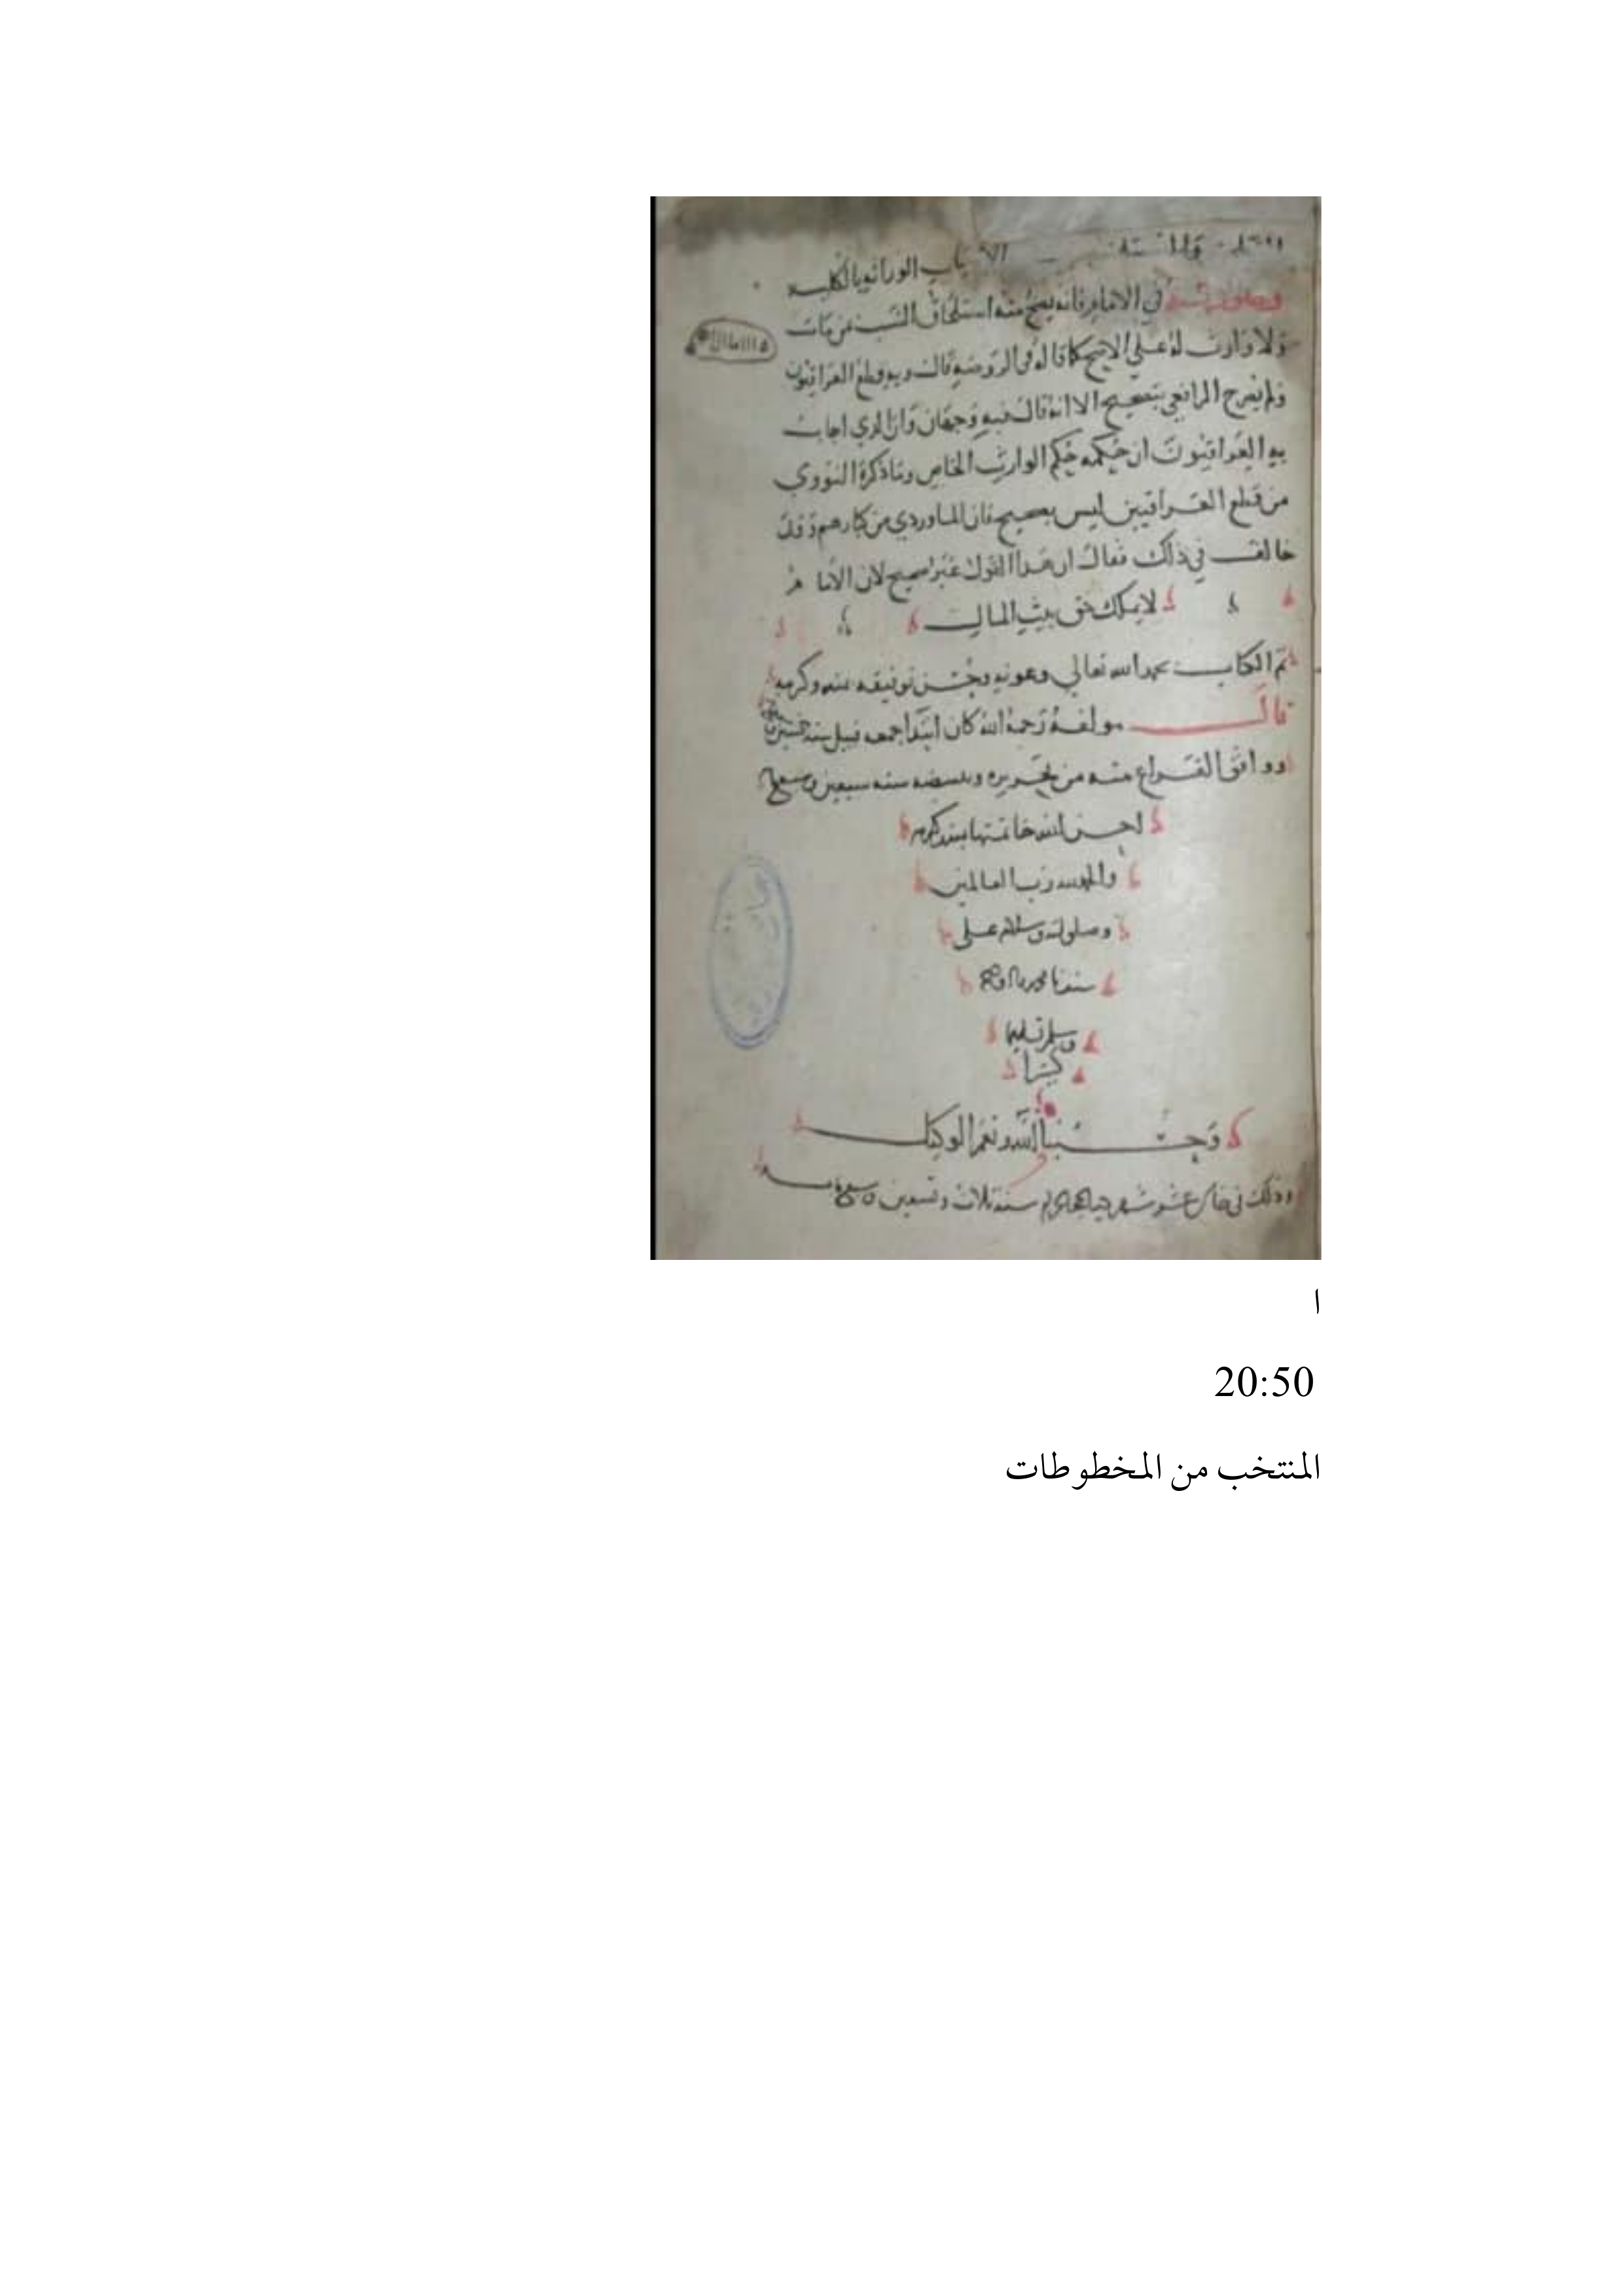 باب الوراثة بالكلية
في الامام فانه يصح منه استلحاق النسب من مات
ولا وارث له علي الاصح كما قاله في الروضة قال وبه قطع العراقيون
ولم يصرح الرافعي بتصحيح الا انه قال فيه وجهان وان الذي اجاب
به العراقيون ان حكمه حكم الوارث الخاص وما ذكره النووي
من قطع العراقيين ليس بصحيح فان الماوردي من كبارهم وقد
خالف في ذلك فقال ان هذا القول غير صحيح لان الامام
لا يملك حق بيت المال
تم الكتاب بحمد الله تعالي وعونه وحسن توفيقه بمنه وكرمه
قال مولفه رحمه الله كان ابتدا جمعه قبيل سنه خمسين
ووافق الفراغ منه من تحريره سنه سبعين وسبعمايه
احسن الله خاتمتها بمنه وكرمه
والحمد لله رب العالمين
وصلى الله وسلام على
سيدنا محمد واله وصحبه
وسلم تسليما
كثيرا
وحسبنا الله ونعم الوكيل
وذلك في خامس عشر شهر سنة ثلاث وتسعين وسبعمايه
ا
20:50
المنتخب من المخطوطات